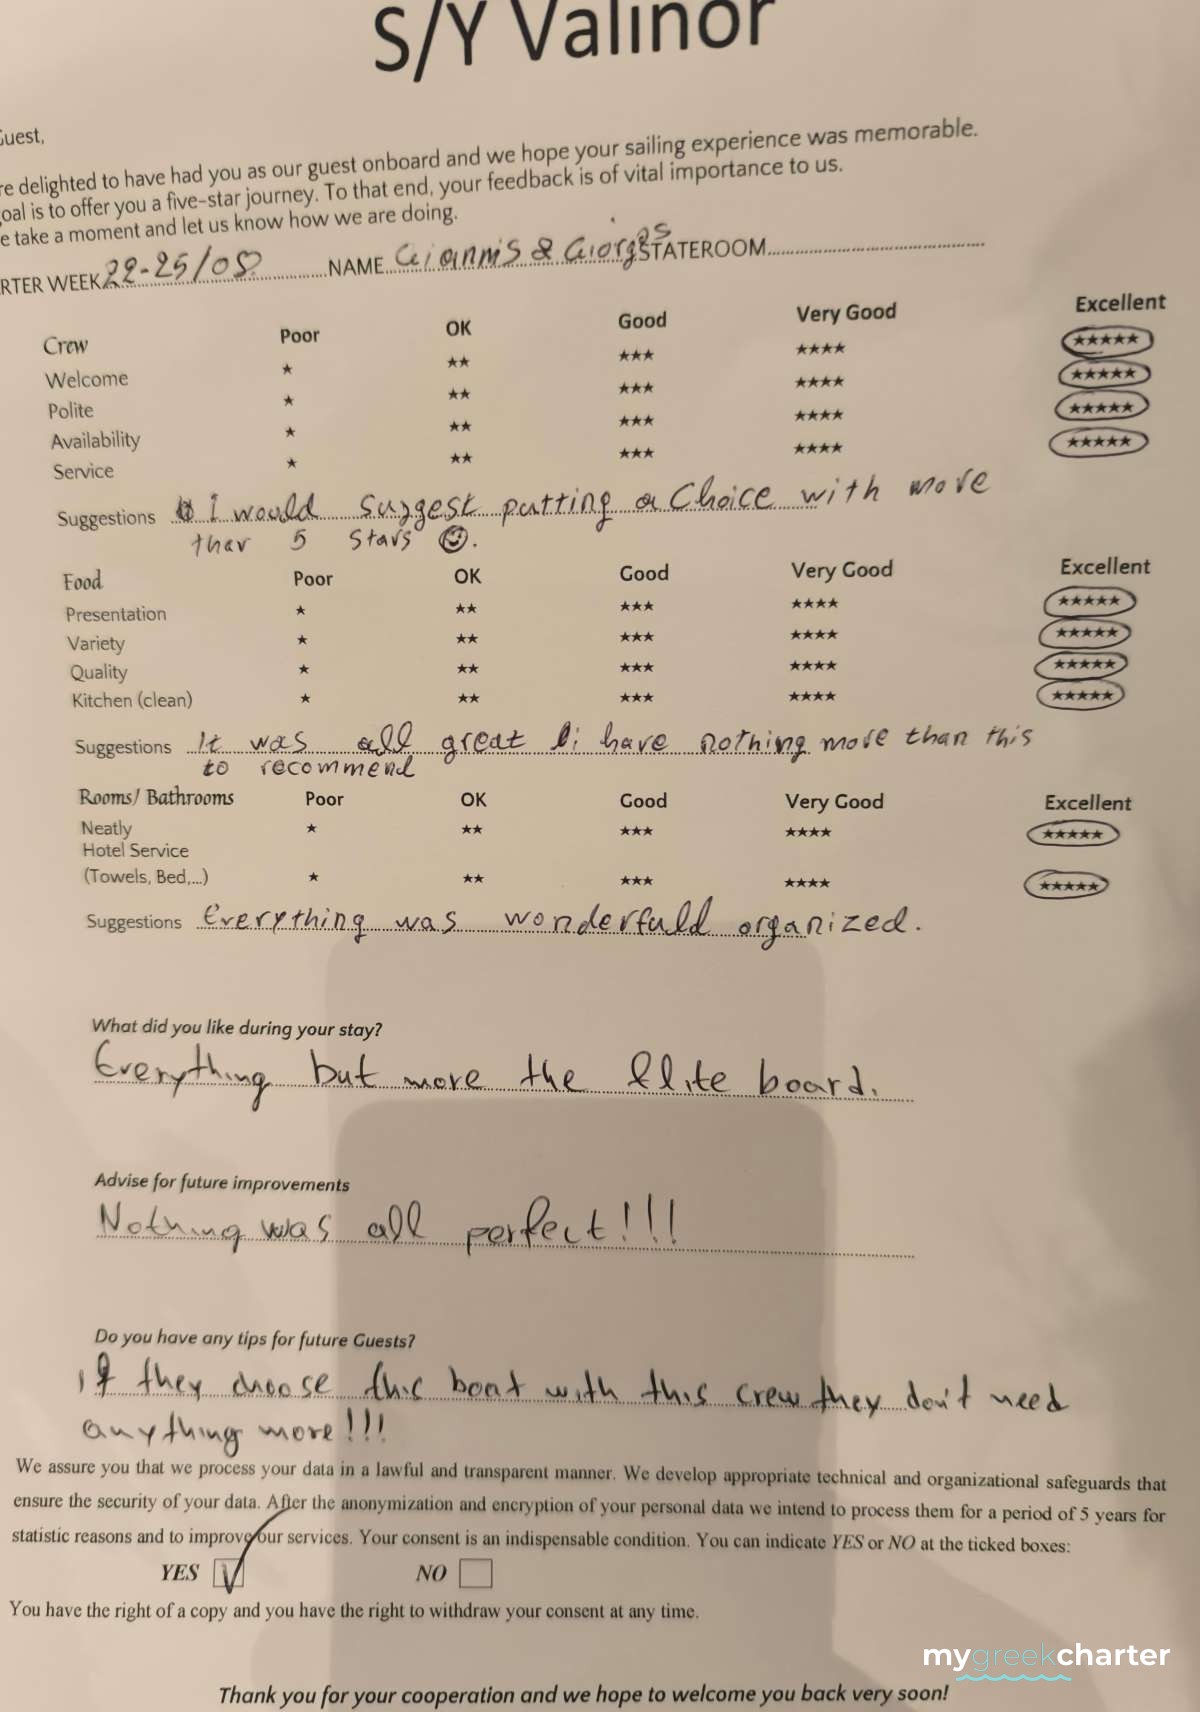 S/Y Valinor
Guest,
re delighted to have had you as our guest onboard and we hope your sailing experience was memorable.
oal is to offer you a five-star journey. To that end, your feedback is of vital importance to us.
e take a moment and let us know how we are doing.
RTER WEEK 22-25/08 NAME Giannis & Giorgos STATEROOM
Crew Poor OK Good Very Good Excellent
Welcome ★ ★★ ★★★ ★★★★ ★★★★★
Polite ★ ★★ ★★★ ★★★★ ★★★★★
Availability ★ ★★ ★★★ ★★★★ ★★★★★
Service ★ ★★ ★★★ ★★★★ ★★★★★
Suggestions I would suggest putting a Choice with more
than 5 stars ☺.
Food Poor OK Good Very Good Excellent
Presentation ★ ★★ ★★★ ★★★★ ★★★★★
Variety ★ ★★ ★★★ ★★★★ ★★★★★
Quality ★ ★★ ★★★ ★★★★ ★★★★★
Kitchen (clean) ★ ★★ ★★★ ★★★★ ★★★★★
Suggestions It was all great i have nothing more than this
to recommend
Rooms/ Bathrooms Poor OK Good Very Good Excellent
Neatly ★ ★★ ★★★ ★★★★ ★★★★★
Hotel Service
(Towels, Bed,...) ★ ★★ ★★★ ★★★★ ★★★★★
Suggestions Everything was wonderfuld organized.
What did you like during your stay?
Everything but more the Elite board.
Advise for future improvements
Nothing was all perfect!!!
Do you have any tips for future Guests?
If they choose this boat with this crew they don't need
anything more!!!
We assure you that we process your data in a lawful and transparent manner. We develop appropriate technical and organizational safeguards that
ensure the security of your data. After the anonymization and encryption of your personal data we intend to process them for a period of 5 years for
statistic reasons and to improve our services. Your consent is an indispensable condition. You can indicate YES or NO at the ticked boxes:
YES NO
You have the right of a copy and you have the right to withdraw your consent at any time.
mygreekcharter
Thank you for your cooperation and we hope to welcome you back very soon!